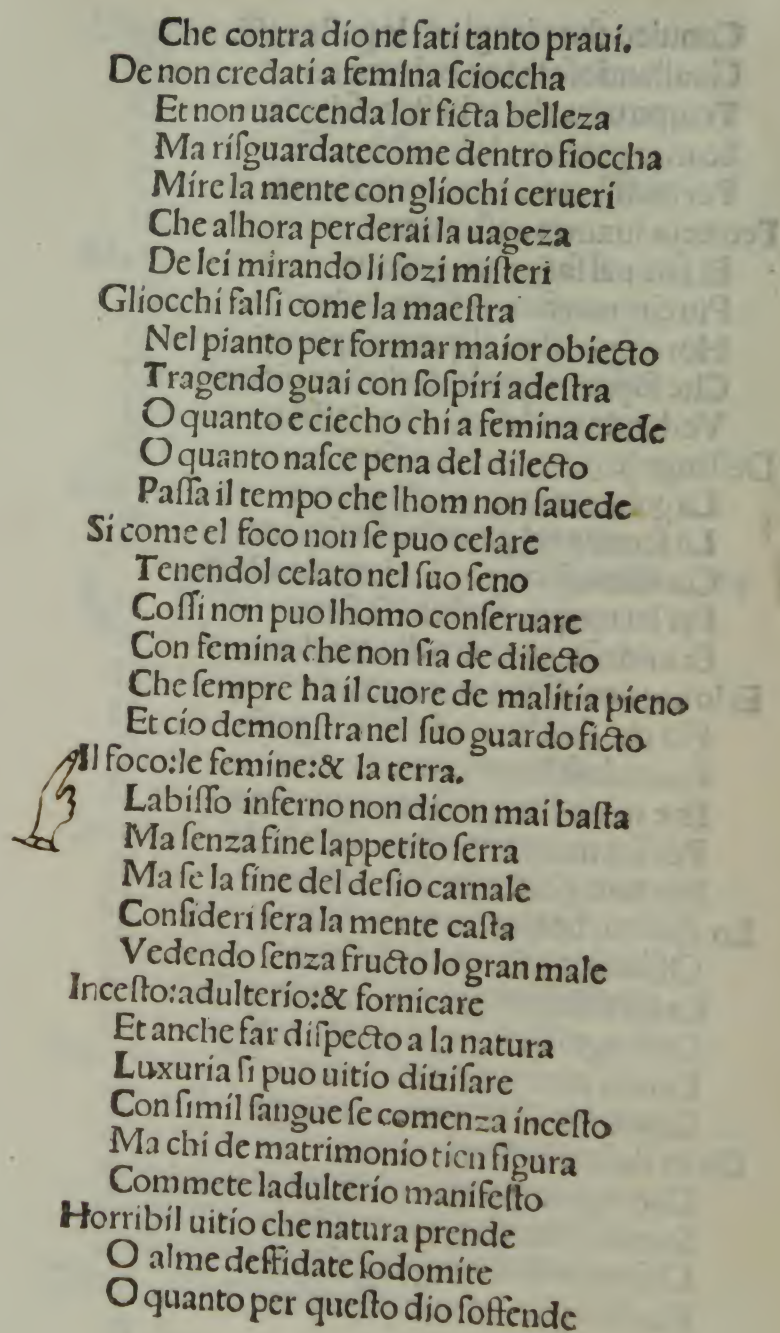 Che contra dio ne fati tanto praui.
De non credati a femina ſcioccha
Et non uaccenda lor ficta belleza
Ma riſguardatecome dentro fioccha
Mire la mente con gliochi cerueri
Che alhora perderai la uageza
De lei mirando li ſozi miſteri
Gliocchi falſi come la maeſtra
Nel pianto per formar maior obiecto
Tragendo guai con ſoſpiri adeſtra
O quanto e ciecho chi a femina crede
O quanto naſce pena del dilecto
Paſſa il tempo che lhom non ſauede
Si come el foco non ſe puo celare
Tenendol celato nel ſuo ſeno
Coſſi non puo lhomo conſeruare
Con femina che non ſia de dilecto
Che ſempre ha il cuore de malitia pieno
Et cio demonſtra nel ſuo guardo ficto
Il foco:le femine:& la terra.
Labiſſo inferno non dicon mai baſta
Ma ſenza fine lappetito ſerra
Ma ſe la fine del deſio carnale
Conſideri ſera la mente caſta
Vedendo ſenza fructo lo gran male
Inceſto:adulterio:& fornicare
Et anche far diſpecto a la natura
Luxuria ſi puo uitio diuiſare
Con ſimil ſangue ſe comenza inceſto
Ma chi de matrimonio tien figura
Commete ladulterio manifeſto
Horribil uitio che natura prende
O alme deffidate ſodomite
O quanto per queſto dio ſoffende